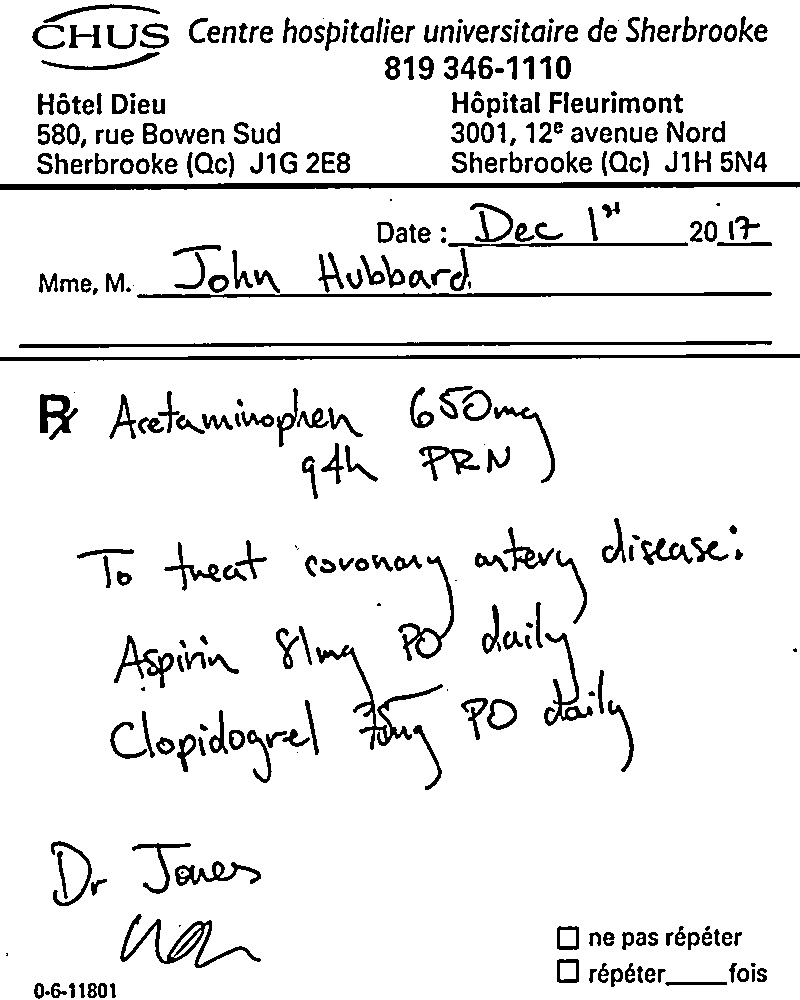 CHUS Centre hospitalier universitaire de Sherbrooke
819 346-1110
Hôtel Dieu
580, rue Bowen Sud
Sherbrooke (Qc) J1G 2E8
Hôpital Fleurimont
3001, 12e avenue Nord
Sherbrooke (Qc) J1H 5N4
Date : Dec 1st 2017
Mme, M. John Hubbard
Rx Acetaminophen 650mg
q4h PRN
To treat coronary artery disease:
Aspirin 81mg PO daily
Clopidogrel PO daily
Dr Jones
ne pas répéter
répéter_____fois
0-6-11801